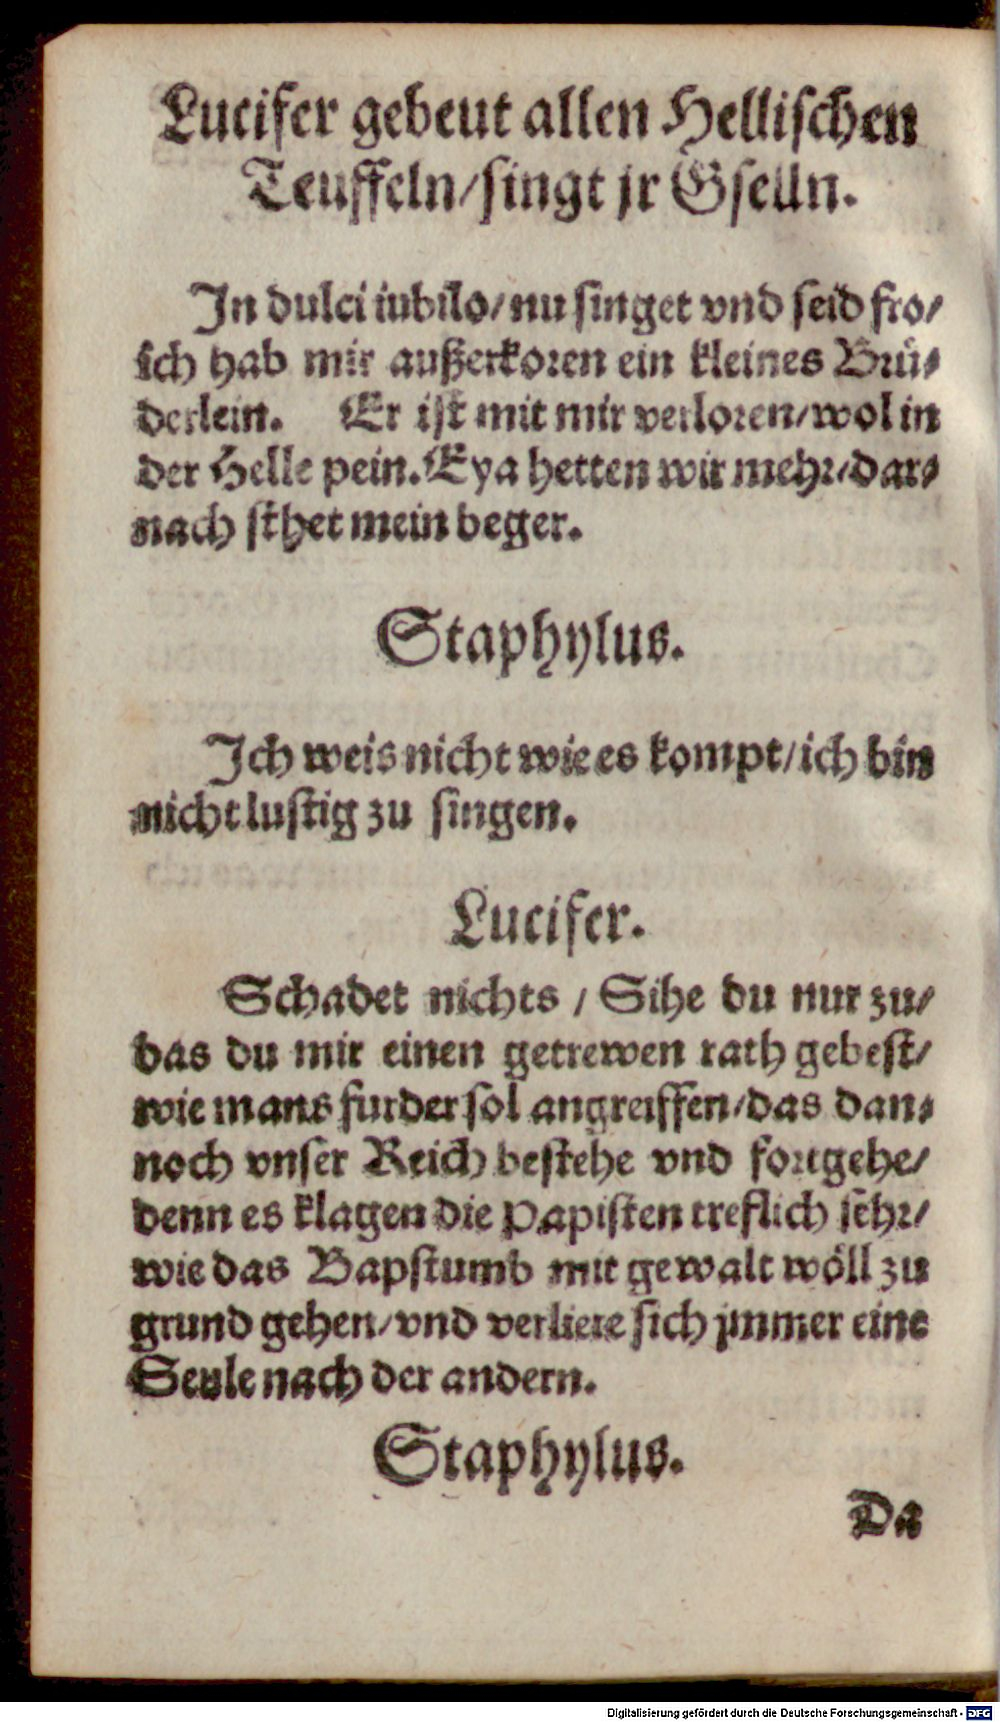 Lucifer gebeut allen Hellischen
Teuffeln/ singt jr Gselln.
In dulci iubilo/ nu singet vnd seid fro/
ich hab mir außerkoren ein kleines Brü⸗
derlein. Er ist mit mir verloren/ wol in
der Helle pein. Eya hetten wir mehr/ dar⸗
nach sthet mein beger.
Staphylus.
Ich weis nicht wie es kompt/ ich bin
nicht lustig zu singen.
Lucifer.
Schadet nichts / Sihe du nur zu/
das du mir einen getrewen rath gebest/
wie mans furder sol angreiffen/ das dan⸗
noch vnser Reich bestehe vnd fortgehe/
denn es klagen die Papisten treflich sehr/
wie das Bapstumb mit gewalt wöll zu
grund gehen/ vnd verliere sich jmmer eine
Seule nach der andern.
Staphylus.
Da
Digitalisierung gefördert durch die Deutsche Forschungsgemeinschaft - DFG